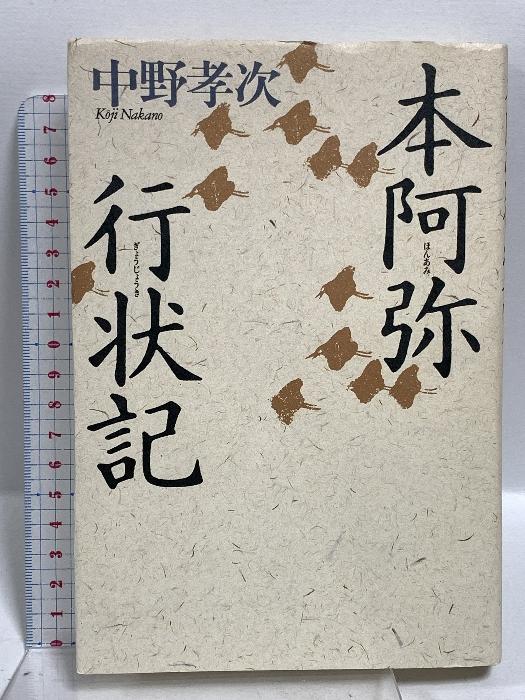 本阿弥
ほんあみ
行状記
ぎょうじょうき
中野孝次
Kōji Nakano
8
7
6
5
4
3
2
1
0
9
8
7
6
5
4
3
2
1
0